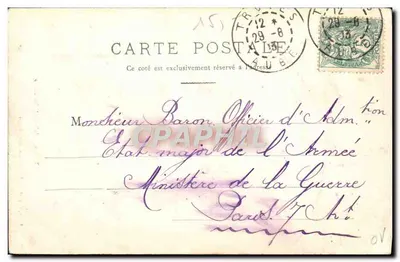 15
CARTE POSTALE
Ce coté est exclusivement réservé à l'adresse
12
29-8
13
12
29-8
13
Monsieur Baron Officier d'Adm.tion
Etat major de l'Armée
Ministère de la Guerre
Paris 7 Art
CPARAMA
OV